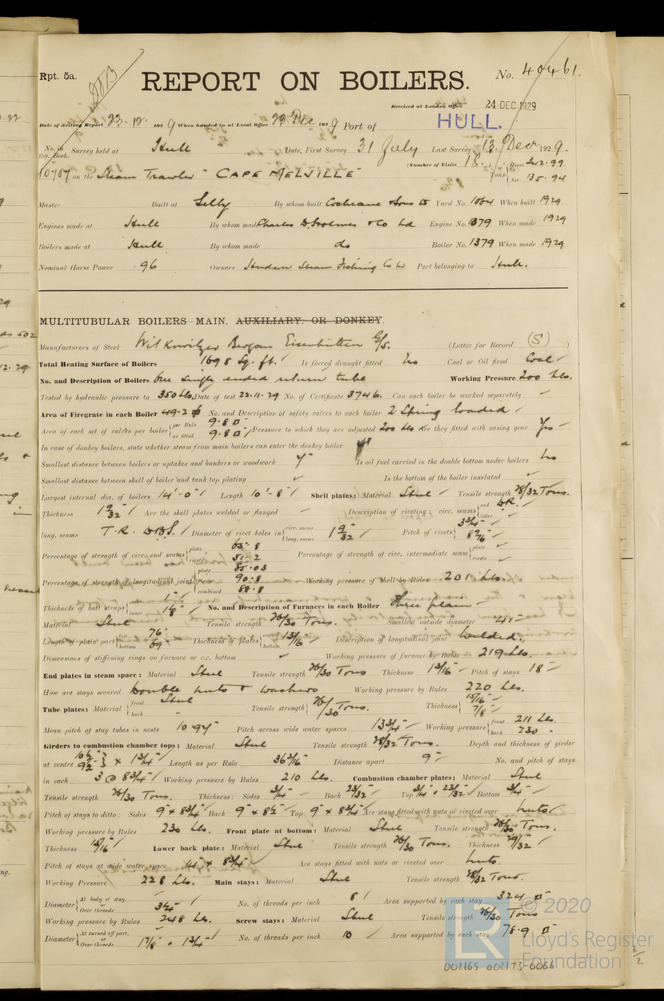 Rpt. 5a.
REPORT ON BOILERS.
No. 40461.
Received at London Office 24 DEC 1929
Date of writing Report 23.12.1929 When handed in at Local Office 23 Dec 1929 Port of HULL.
No. in Reg. Book. Survey held at Hull Date, First Survey 31 July Last Survey 13 Dec 1929.
on the Steam Trawler "CAPE MELVILLE" (Number of Visits 18) Tons Gross 342.99 Net 135.94
Master Built at Selby By whom built Cochrane & Sons Ld Yard No. 1064 When built 1929
Engines made at Hull By whom made Charles D. Holmes & Co Ld Engine No. 1379 When made 1929
Boilers made at Hull By whom made do Boiler No. 1379 When made 1929
Nominal Horse Power 96 Owners Hudson Steam Fishing Co Ld Port belonging to Hull.
MULTITUBULAR BOILERS MAIN, AUXILIARY, OR DONKEY.
Manufacturers of Steel Witkowitzer (Letter for Record (S))
Total Heating Surface of Boilers 1698 Sq. ft. Is forced draught fitted No Coal or Oil fired Coal
No. and Description of Boilers One single ended return tube Working Pressure 200 lbs.
Tested by hydraulic pressure to 350 lbs. Date of test 22.11.29 No. of Certificate 3746. Can each boiler be worked separately
Area of Firegrate in each Boiler 49.2 No. and Description of safety valves to each boiler 2 Spring loaded
Area of each set of valves per boiler per Rule 9.80 as fitted 9.80 Pressure to which they are adjusted 200 lbs Are they fitted with easing gear Yes
In case of donkey boilers, state whether steam from main boilers can enter the donkey boiler
Smallest distance between boilers or uptakes and bunkers or woodwork Is oil fuel carried in the double bottom under boilers No
Smallest distance between shell of boiler and tank top plating Is the bottom of the boiler insulated
Largest internal dia. of boilers 14'-0" Length 10'-8" Shell plates: Material Steel Tensile strength 28/32 Tons.
Thickness 19/32 Are the shell plates welded or flanged Description of riveting: circ. seams end D.R. inter.
long. seams T.R. D.B.S. Diameter of rivet holes in circ. seams long. seams 1 9/32 Pitch of rivets
Percentage of strength of circ. end seams plate 63.8 rivets 51.2 Percentage of strength of circ. intermediate seam plate rivets
Percentage of strength of longitudinal joint plate 85.03 rivets 90.8 combined 88.8 Working pressure of shell by Rules 201 lbs.
Thickness of butt straps No. and Description of Furnaces in each Boiler Three plain
Material Steel Tensile strength 26/30 Tons. Smallest outside diameter 41"
Length of plain part top 76" bottom 69" Thickness of plates 13/16 Description of longitudinal joint Welded.
Dimensions of stiffening rings on furnace or c.c. bottom Working pressure of furnace by Rules 219 lbs.
End plates in steam space: Material Steel Tensile strength 26/30 Tons Thickness 1 3/16 Pitch of stays 18"
How are stays secured Double nuts & washers Working pressure by Rules 220 lbs.
Tube plates: Material front back Steel Tensile strength 26/30 Tons. Thickness 15/16 7/8
Mean pitch of stay tubes in nests 10.94 Pitch across wide water spaces 13 3/4 Working pressure front 211 lbs. back 230
Girders to combustion chamber tops: Material Steel Tensile strength 28/32 Tons. Depth and thickness of girder
at centre Length as per Rule Distance apart 9" No. and pitch of stays
in each 3 @ 8 3/4 Working pressure by Rules 210 lbs. Combustion chamber plates: Material Steel
Tensile strength 26/30 Tons. Thickness: Sides 3/4 Back 23/32 Top 3/4 & 23/32 Bottom 3/4
Pitch of stays to ditto: Sides 9" x 8 3/4 Back 9" x 8 1/2 Top 9" x 8 3/4 Are stays fitted with nuts or riveted over nuts
Working pressure by Rules 230 lbs. Front plate at bottom: Material Steel Tensile strength 26/30 Tons.
Thickness 15/16 Lower back plate: Material Steel Tensile strength 26/30 Tons. Thickness 29/32
Pitch of stays at wide water space Are stays fitted with nuts or riveted over nuts.
Working Pressure 228 lbs. Main stays: Material Steel Tensile strength 28/32 Tons.
Diameter At body of stay, or Over threads 3 1/4 No. of threads per inch 8 Area supported by each stay 324
Working pressure by Rules 248 lbs. Screw stays: Material Steel Tensile strength 26/30 Tons
Diameter At turned off part, or Over threads 1 7/8 & 1 3/4 No. of threads per inch 10 Area supported by each stay 78.9
© 2020
LR
Lloyd's Register
Foundation
002165-002173-0066
1/2